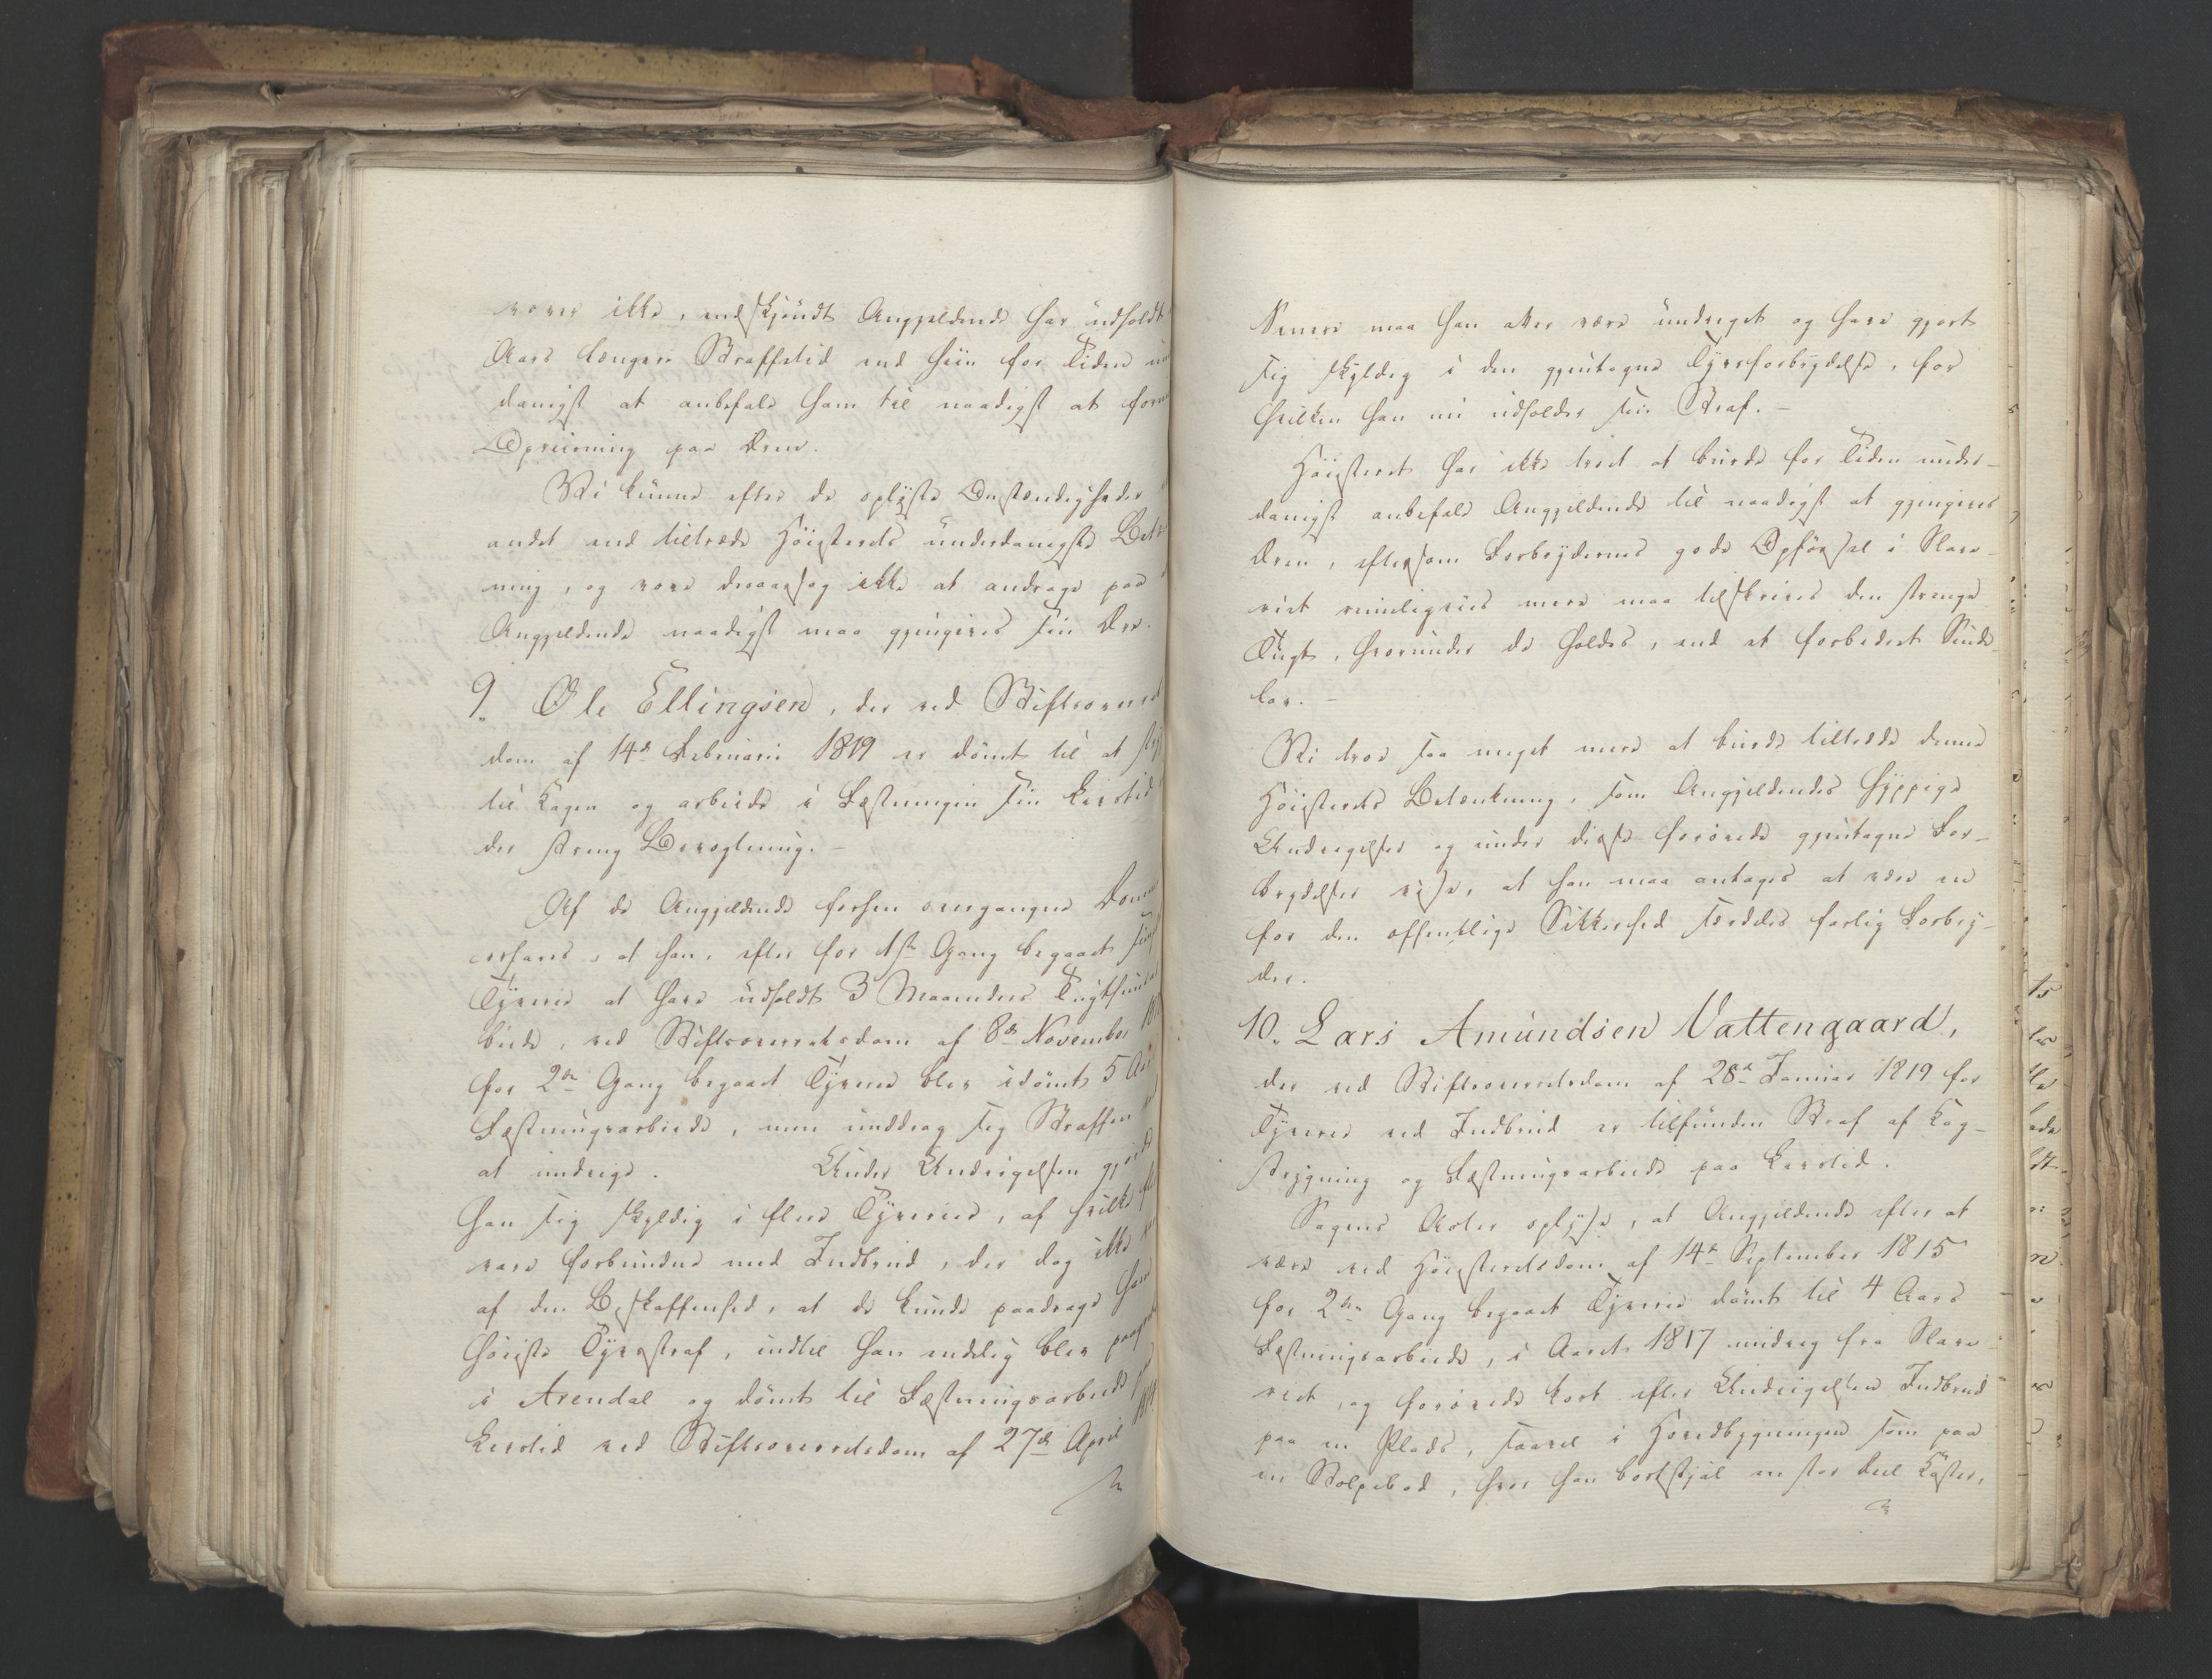 vover ikke, endskjøndt Angjeldende har udholdt
Aars længere Straffetid end hiin for Tiden
danigst at anbefale ham til naadigst at
Opreisning paa Æren.
Vi kunne efter de oplyste Omstændigheder
andet end tiltræde Høiesterets underdanigste
ning, og vove desaarsag ikke at andrage paa
Angjeldende naadigst maa gjengives sin Ære.
9. Ole Ellingsen, der ved
dom af 14de Februarii 1819 er dømt til at
til Kagen og arbeide i Fæstningen sin Livstid
der streng Bevogtning. -
Af de Angjeldende forhen overgangne
erfares, at han, efter for 1ste Gang begaaet
Tyverie at have udholdt 3 Maaneders
beide, ved Stiftsoverretsdom af 8de November
for 2den Gang begaaet Tyverie blev idømt 5
Fæstningsarbeide, men unddrog sig Straffen
at undvige. Under Undvigelsen
han sig skyldig i flere Tyverier, af hvilke
vare forbundne med Indbrud, der dog ikke
af den Beskaffenhed, at de kunde paadrage
høieste Tyvsstraf, indtil han endelig blev
i Arendal og dømt til Fæstningsarbeide
Livstid ved Stiftsoverretsdom af 27de April
Senere maa han atter være undveget og have gjort
sig skyldig i den gjentagne Tyvsforbrydelse, for
hvilken han nu udholder sin Straf. -
Høiesteret har ikke troet at burde for Tiden under-
danigst anbefale Angjeldende til naadigst at gjengives
Æren, eftersom Forbrydernes gode Opførsel i Slave-
riet rimeligviis mere maa tilskrives den strenge
Tugt, hvorunder de holdes, end et forbedret Sinde-
lav. -
Vi troe saa meget mere at burde tiltræde denne
Høiesterets Betænkning, som Angjeldendes hyppige
Undvigelser og under disse forøvede gjentagne For-
brydelser vise, at han maa antages at være en
for den offentlige Sikkerhed særdeles farlig Forbry-
der.
10. Lars Amundsen Vattengaard,
der ved Stiftsoverretsdom af 28de Januar 1819 for
Tyverie ved Indbrud er tilfunden Straf af Kag-
strygning og Fæstningsarbeide paa Livstid.
Sagens Acter oplyse, at Angjeldende efter at
være ved Høiesteretsdom af 14de September 1815
for 2den Gang begaaet Tyverie dømt til 4 Aars
Fæstningsarbeide, i Aaret 1817 undveg fra Slave-
riet, og forøvede kort efter Undvigelsen Indbrud
paa en Plads, saavel i Hovedbygningen som paa
en Stolpebod, hvor han bortstjal en stor Deel Koster,